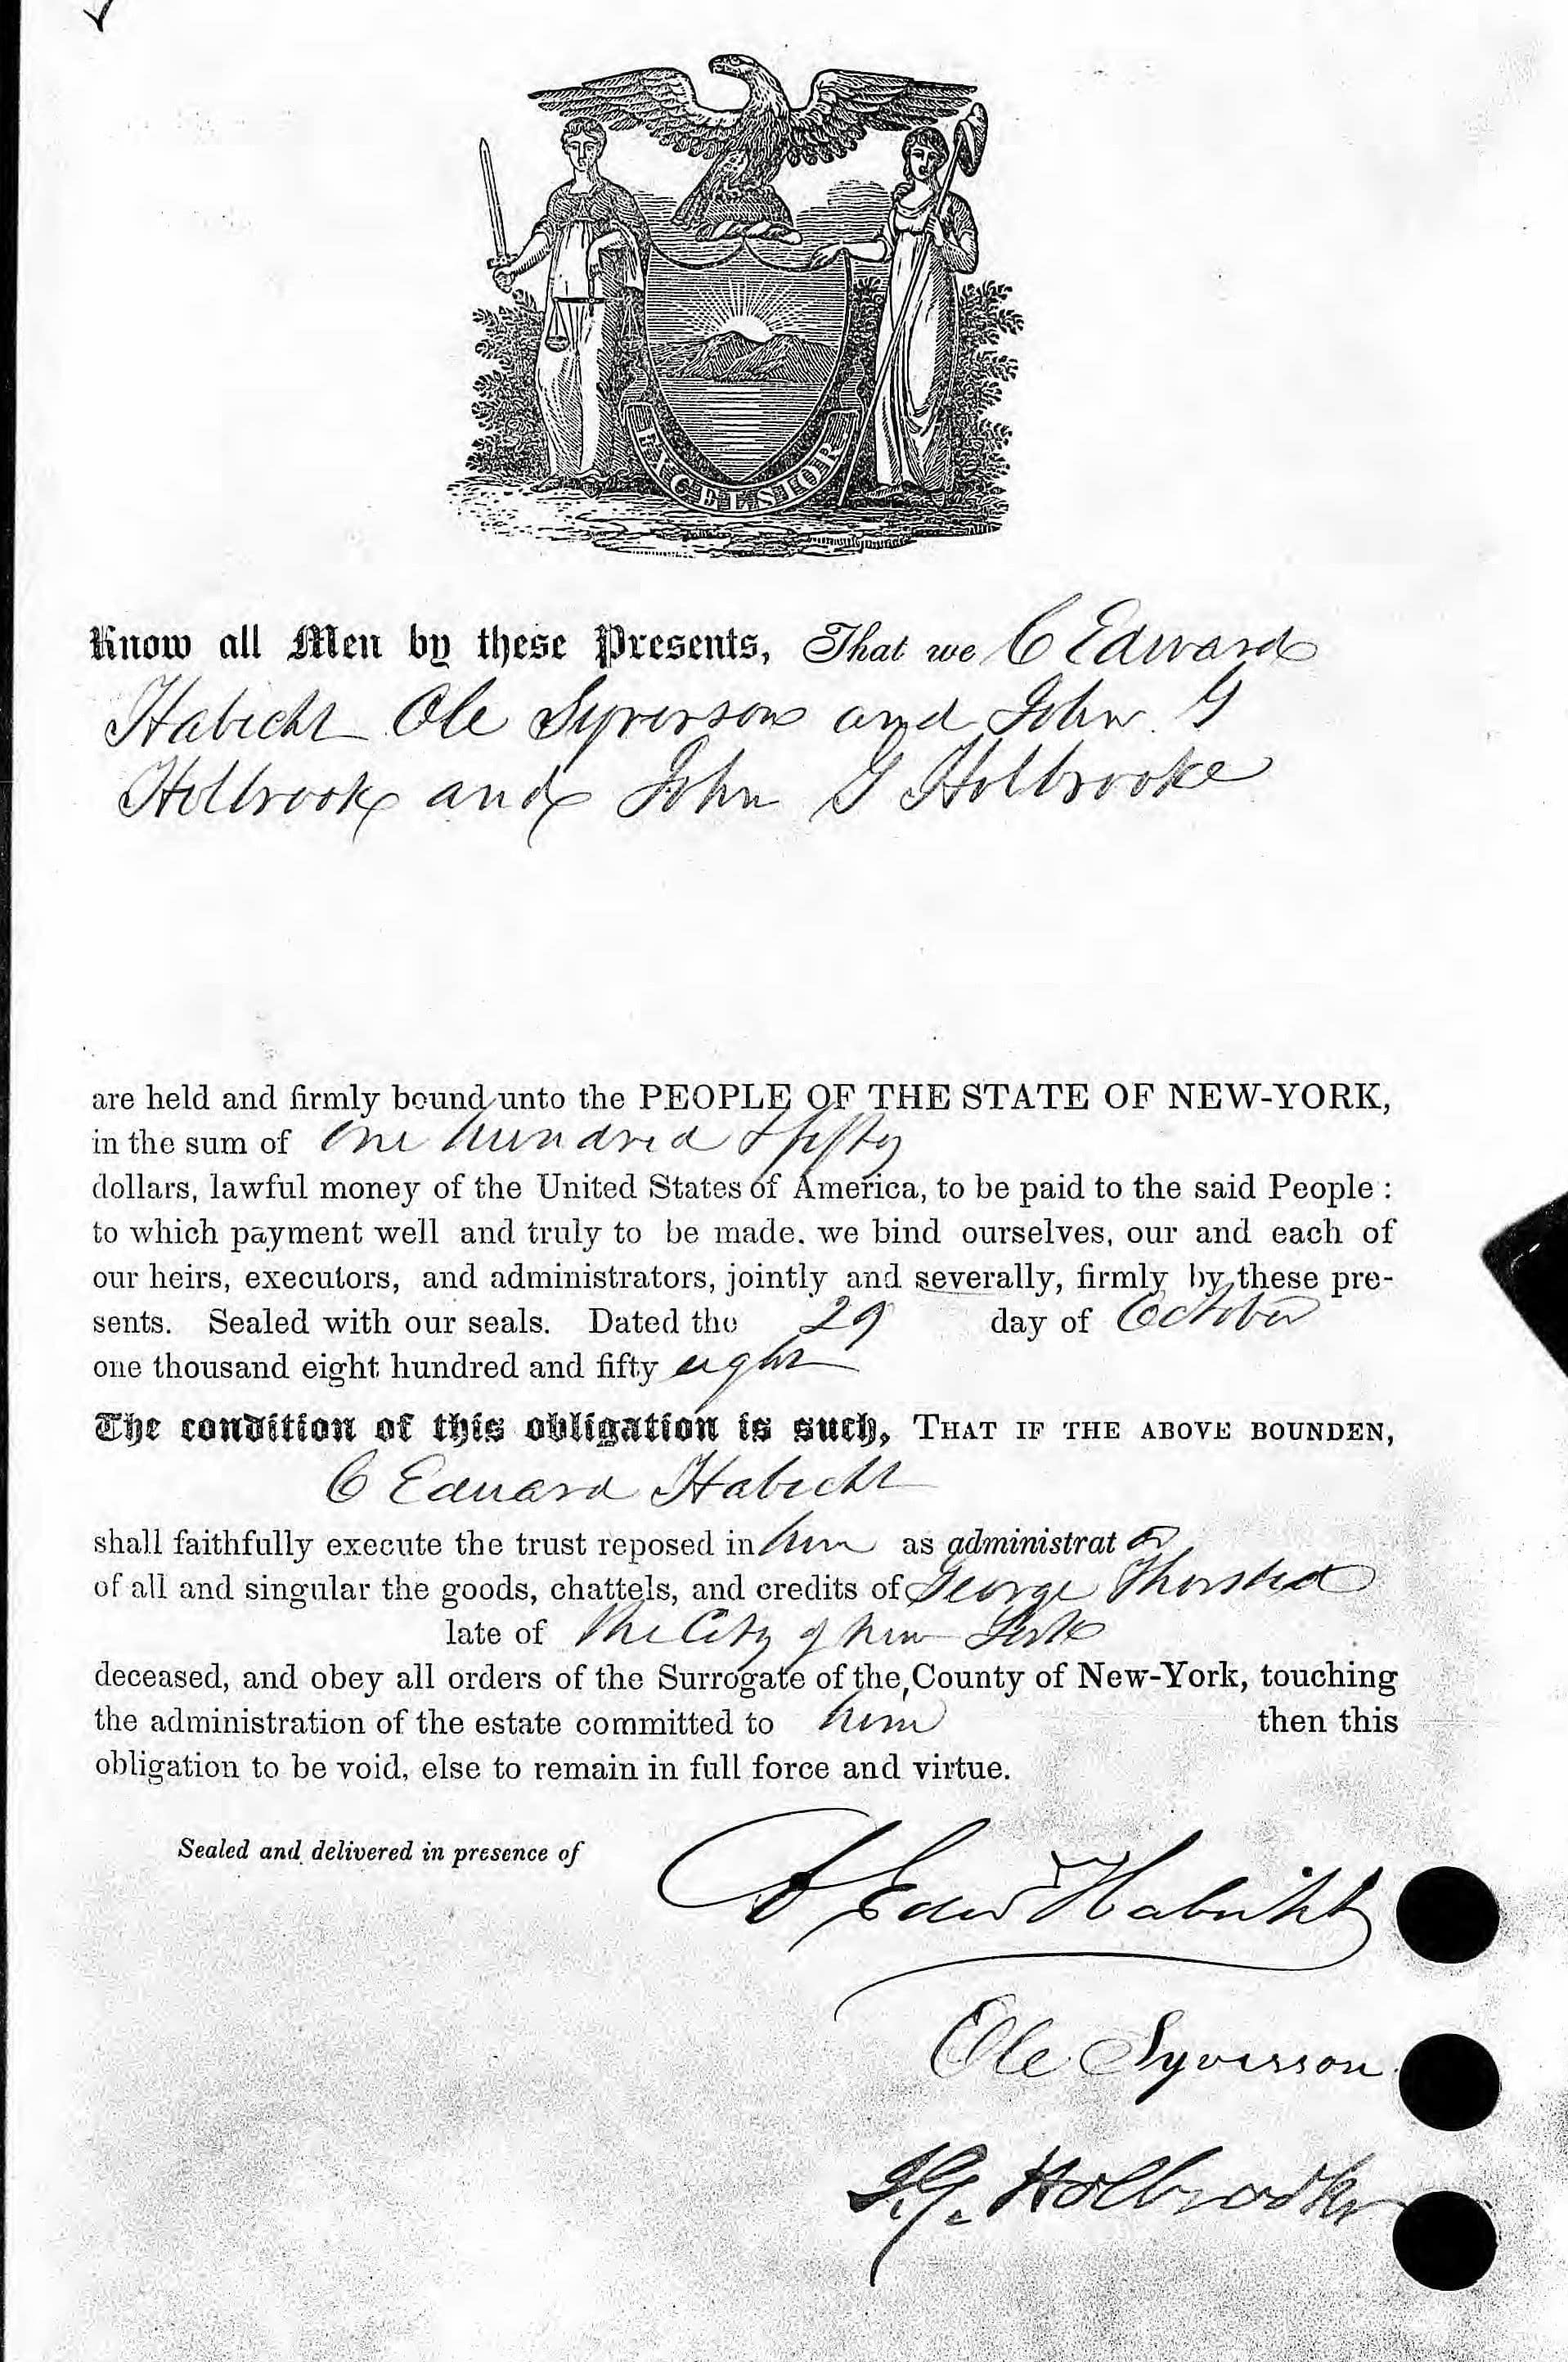 EXCELSIOR
Know all Men by these Presents, That we C Edward
Habicht Ole Syverson and John G
Holbrook and John G Holbrooke
are held and firmly bound unto the PEOPLE OF THE STATE OF NEW-YORK,
in the sum of One hundred & fifty
dollars, lawful money of the United States of America, to be paid to the said People :
to which payment well and truly to be made. we bind ourselves, our and each of
our heirs, executors, and administrators, jointly and severally, firmly by these pre-
sents. Sealed with our seals. Dated the 29 day of October
one thousand eight hundred and fifty eight
The condition of this obligation is such, THAT IF THE ABOVE BOUNDEN,
C Edward Habicht
shall faithfully execute the trust reposed in him as administrator
of all and singular the goods, chattels, and credits of George Thorsted
late of The City of New York
deceased, and obey all orders of the Surrogate of the County of New-York, touching
the administration of the estate committed to him then this
obligation to be void, else to remain in full force and virtue.
Sealed and delivered in presence of
C Edwd Habicht
Ole Syversson
J.G. Holbrooke